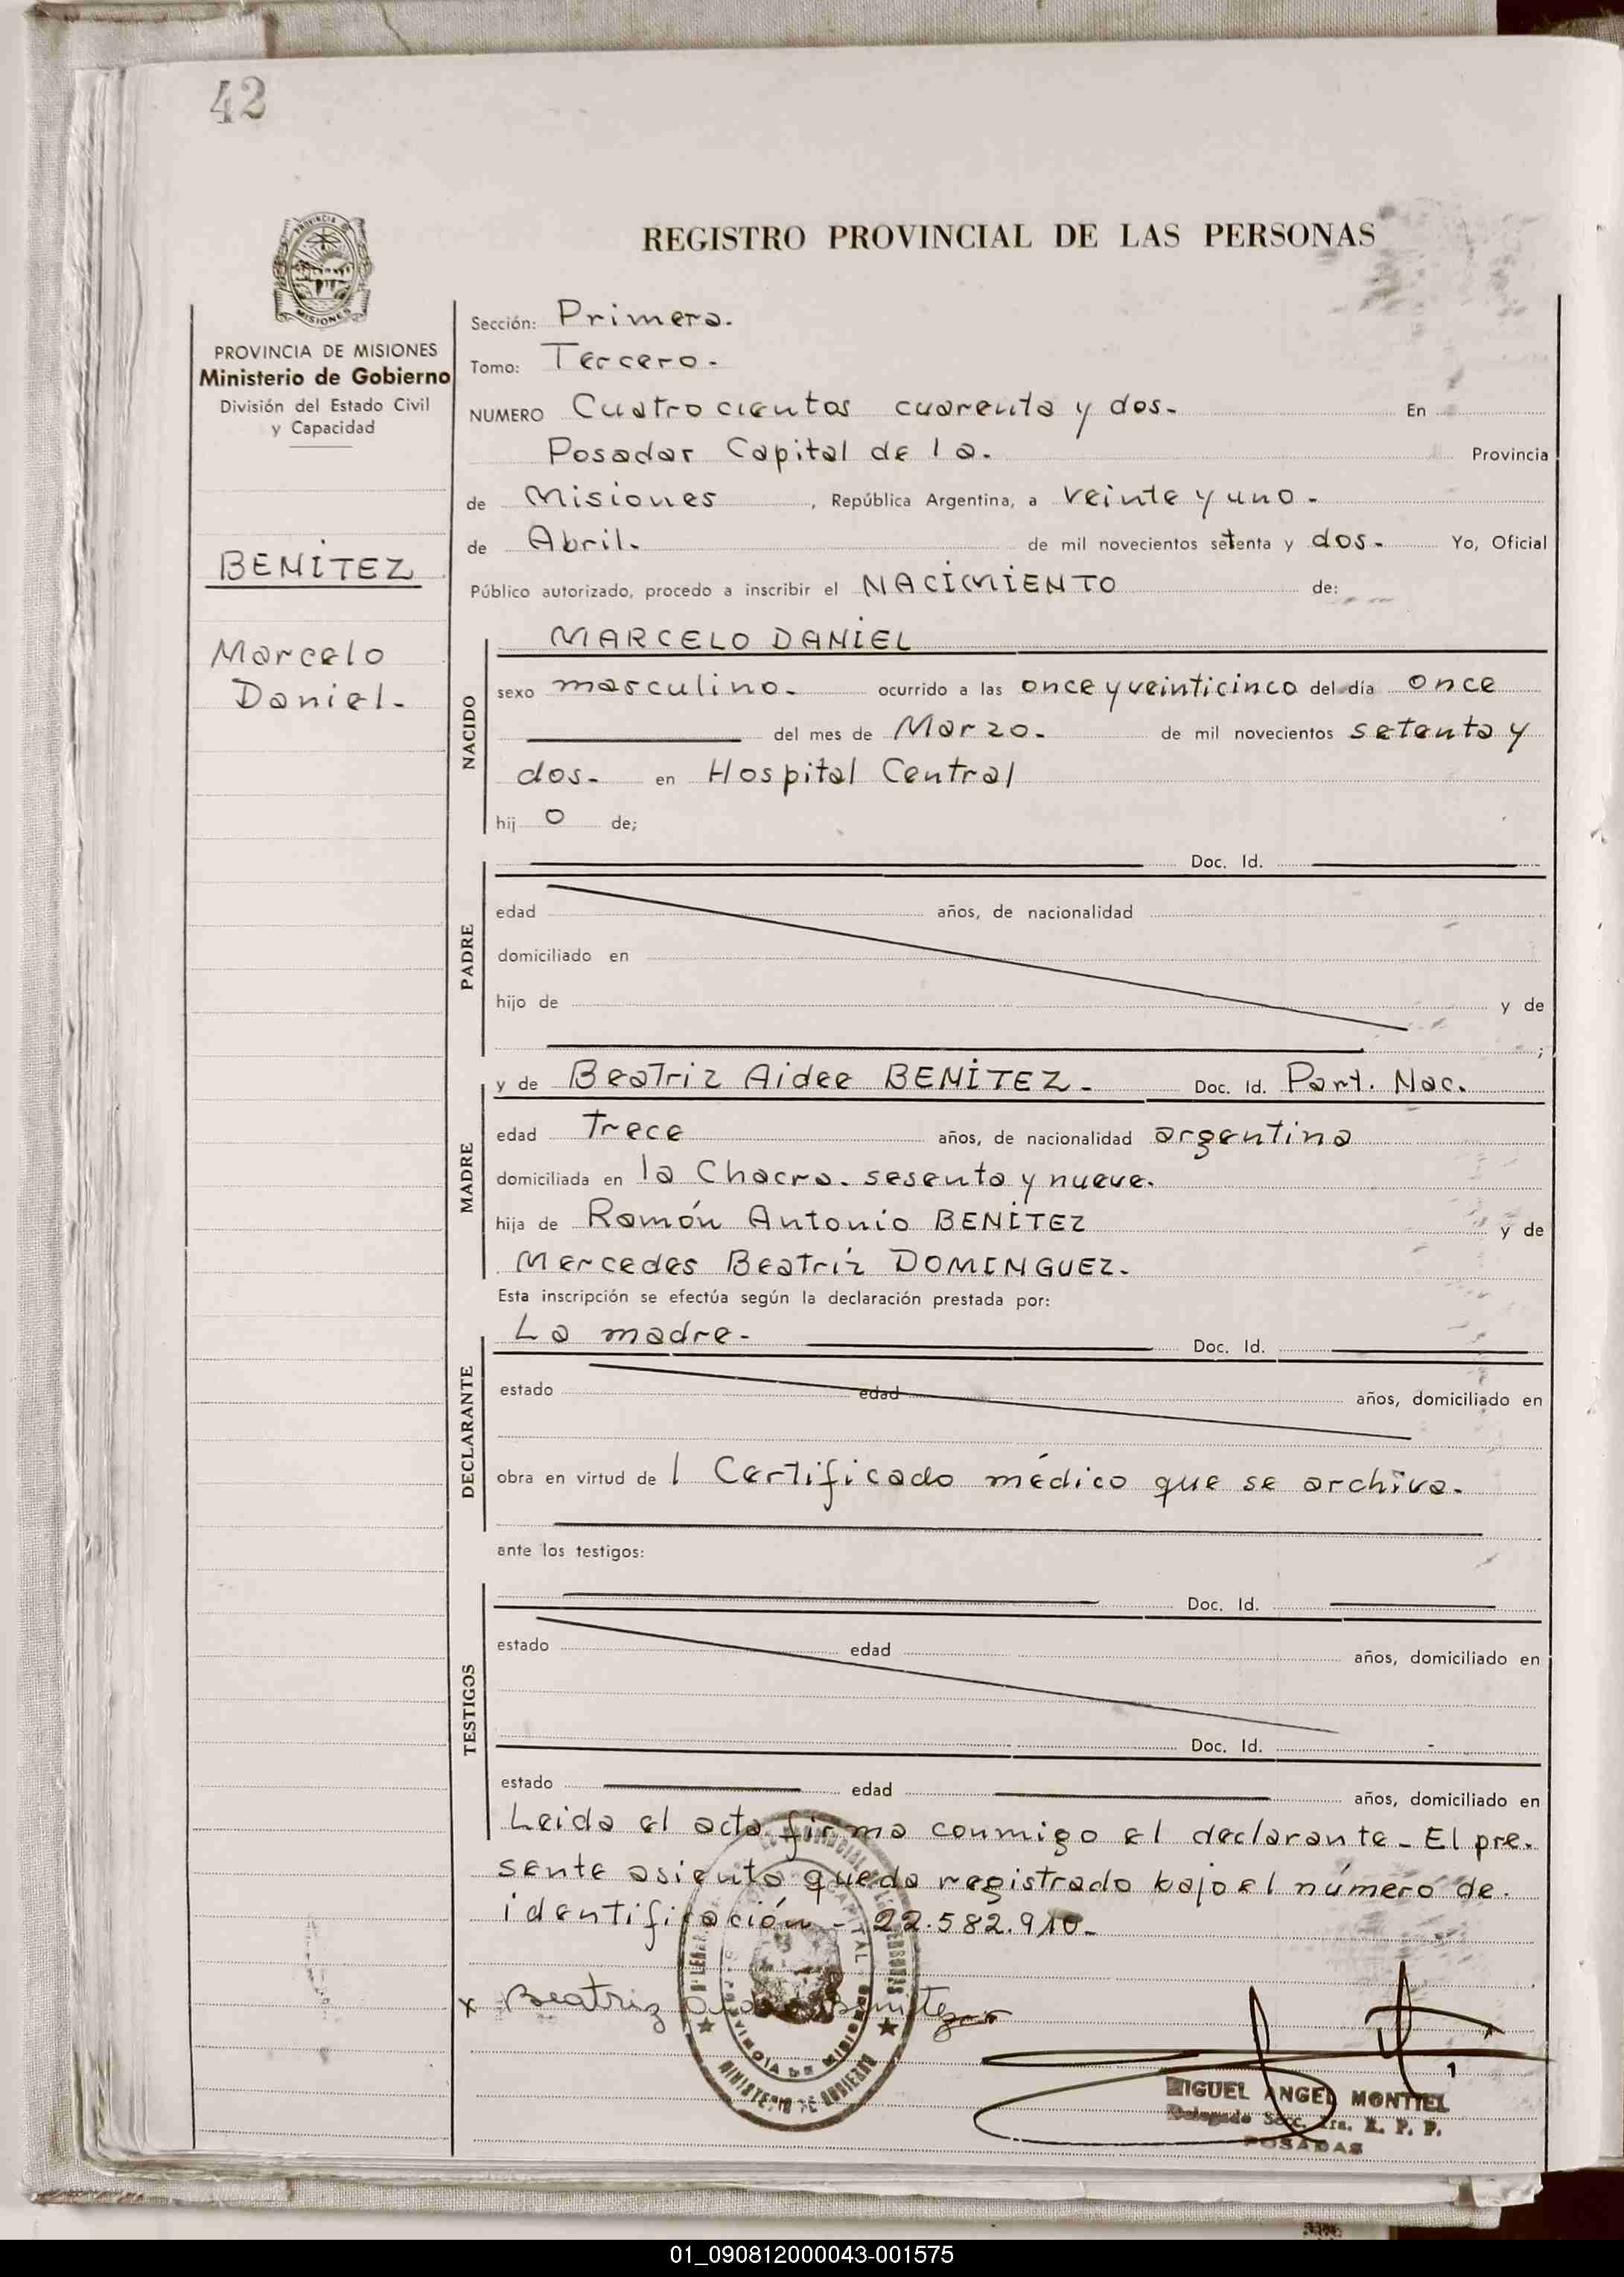 42
PROVINCIA
MISIONES
PROVINCIA DE MISIONES
Ministerio de Gobierno
División del Estado Civil
y Capacidad
BENITEZ
Marcelo
Daniel.-
REGISTRO PROVINCIAL DE LAS PERSONAS
Sección: Primera.
Tomo: Tercero.-
NUMERO Cuatrocientos cuarenta y dos.- En
Posadas Capital de la. Provincia
de Misiones, República Argentina, a veinte y uno.-
de Abril. de mil novecientos setenta y dos.- Yo, Oficial
Público autorizado, procedo a inscribir el NACIMIENTO de:
NACIDO
MARCELO DANIEL
sexo masculino.- ocurrido a las once y veinticinco del día once
del mes de Marzo.- de mil novecientos setenta y
dos.- en Hospital Central
hij o de;
PADRE
Doc. Id.
edad años, de nacionalidad
domiciliado en
hijo de y de
;
MADRE
y de Beatriz Aidee BENITEZ.- Doc. Id. Part. Nac.
edad Trece años, de nacionalidad argentina
domiciliada en la Chacra. sesenta y nueve.
hija de Ramón Antonio BENITEZ y de
Mercedes Beatriz DOMINGUEZ.-
Esta inscripción se efectúa según la declaración prestada por:
DECLARANTE
La madre.- Doc. Id.
estado edad años, domiciliado en
obra en virtud de l Certificado médico que se archiva.
ante los testigos:
TESTIGOS
Doc. Id.
estado edad años, domiciliado en
Doc. Id.
estado edad años, domiciliado en
Leida el acta firma conmigo el declarante.- El pre.
sente asiento queda registrado bajo el número de.
identificación - 22.582.910.-
x Beatriz Benitez
MINISTERIO DE GOBIERNO
PROVINCIA DE MISIONES
MIGUEL ANGEL MONTIEL
Delegado Secc. 1ra. R. P. P.
POSADAS
01_090812000043-001575